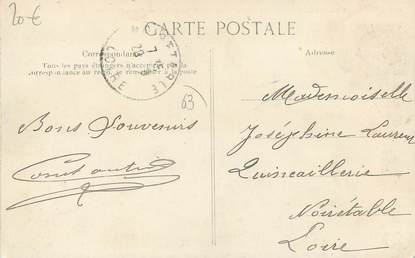 20 €
CARTE POSTALE
Correspondance
Tous les pays étrangers n'acceptent pas la
correspondance au recto, se renseigner à la poste
Adresse
LOIRE
63
Bons Souvenirs
Constantin
Mademoiselle
Joséphine Laurent
Quincaillerie
Noirétable
Loire